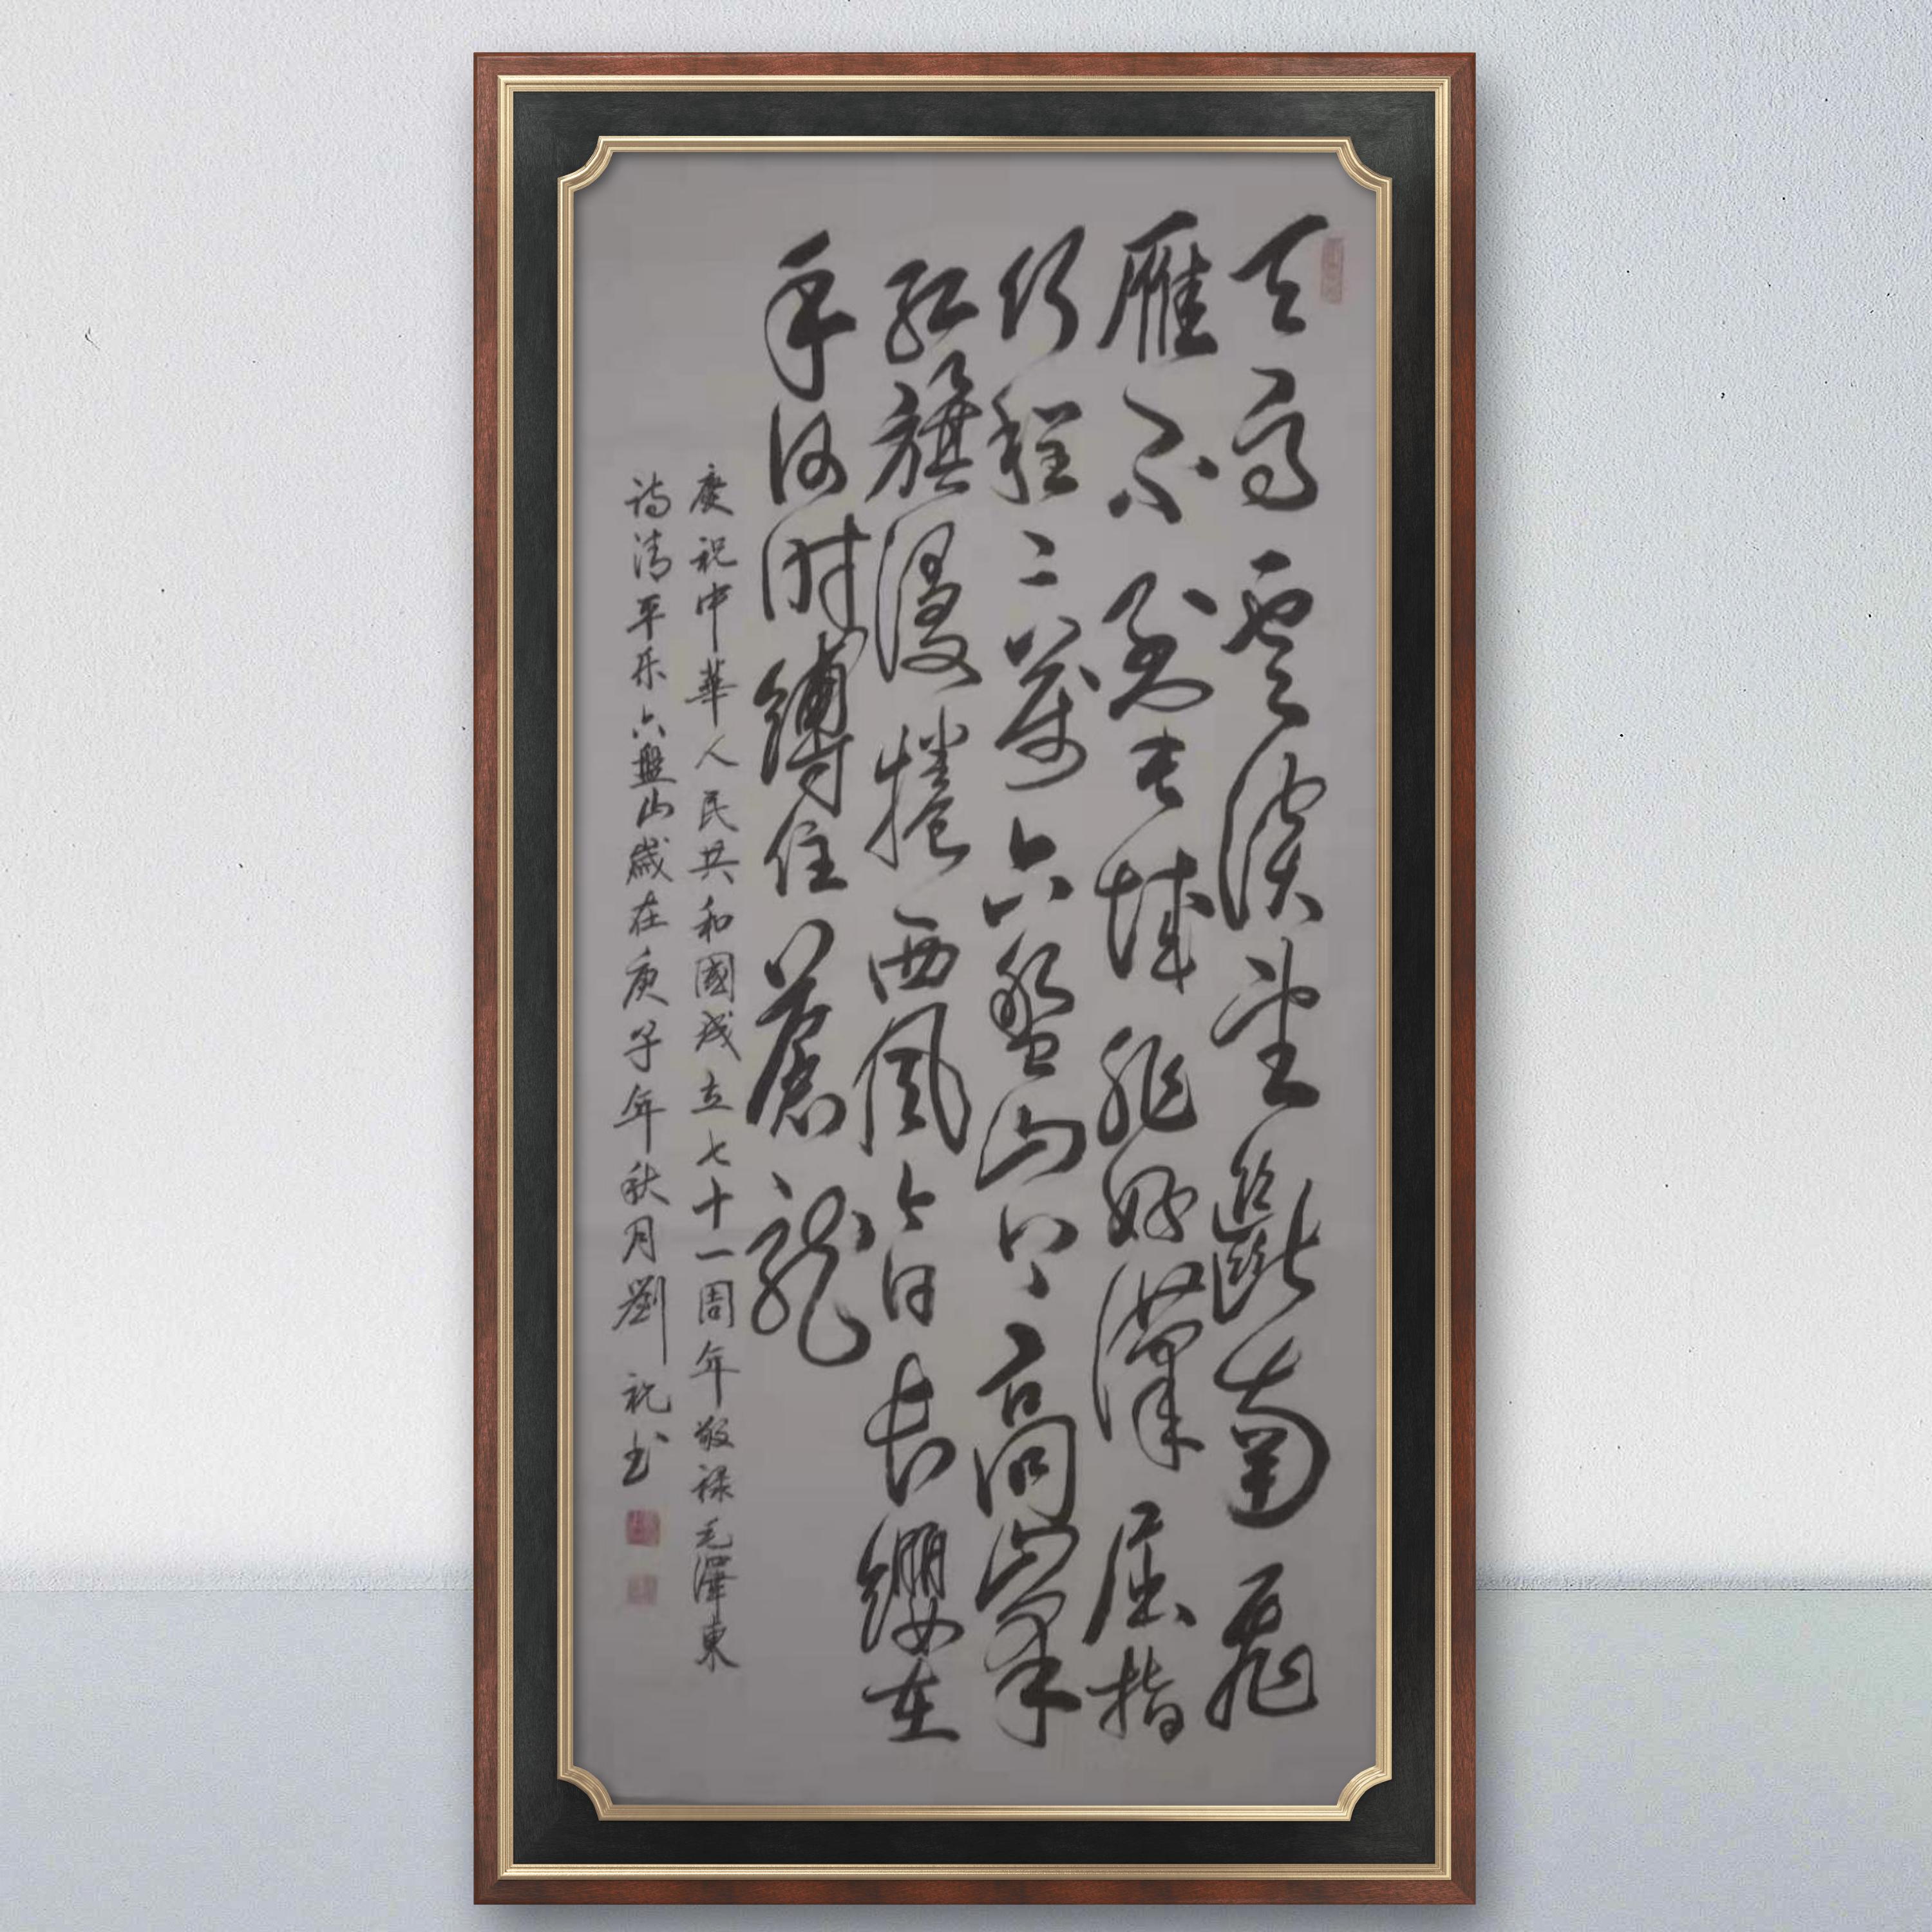 天高雲淡望斷南飛
雁不到長城非好漢屈指
行程二萬六盤山上高峯
紅旗漫捲西風今日長纓在
手何時縛住蒼龍
慶祝中華人民共和國成立七十一周年敬禄毛澤東
诗清平乐六盤山歲在庚子年秋月劉祝书